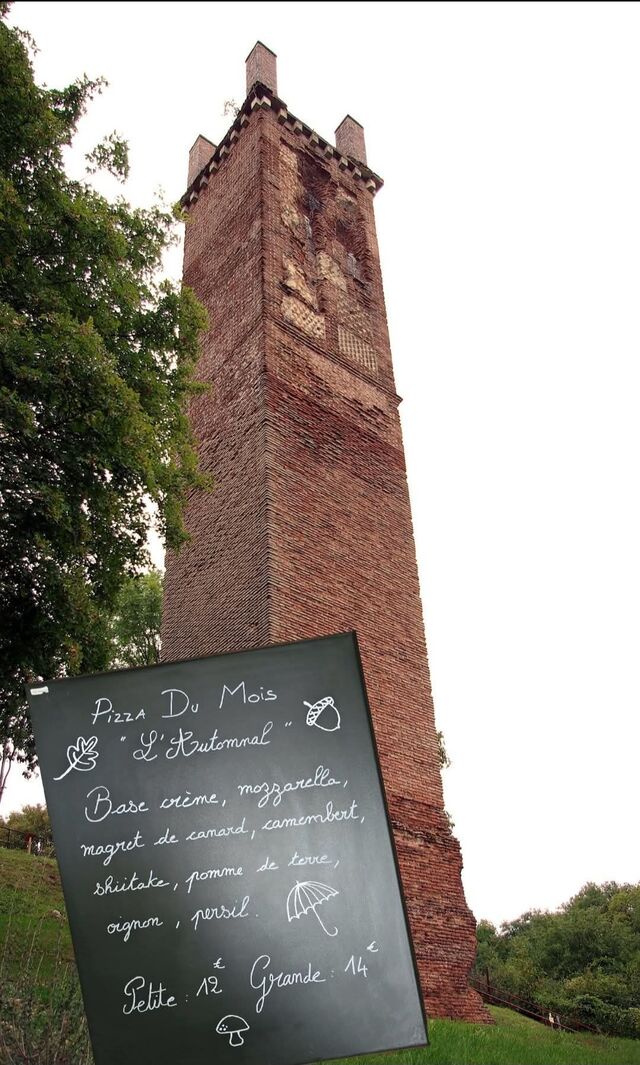 Pizza Du Mois
"L'Automnal"
Base crème, mozzarella,
magret de canard, camembert,
shiitake, pomme de terre,
oignon, persil.
Petite : 12€ Grande : 14€